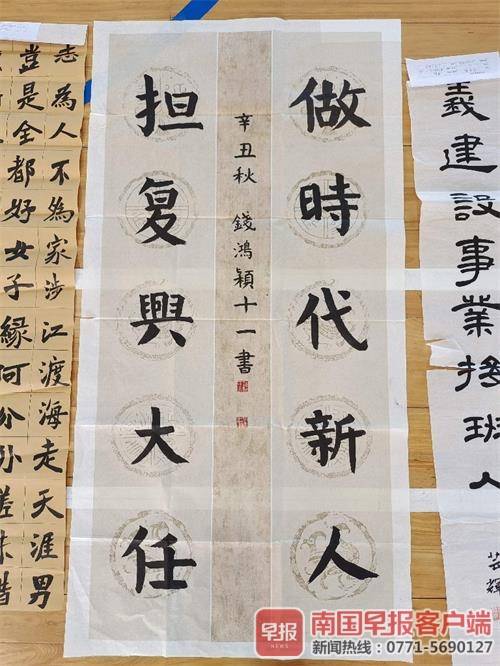 義建設事業接班人
做時代新人
辛丑秋 錢鴻穎十一書
担复興大任
志為人不為家涉江渡海走天涯男
豈是全都好女子緣何分外
早报
NEWS
南国早报客户端
新闻热线：0771-5690127